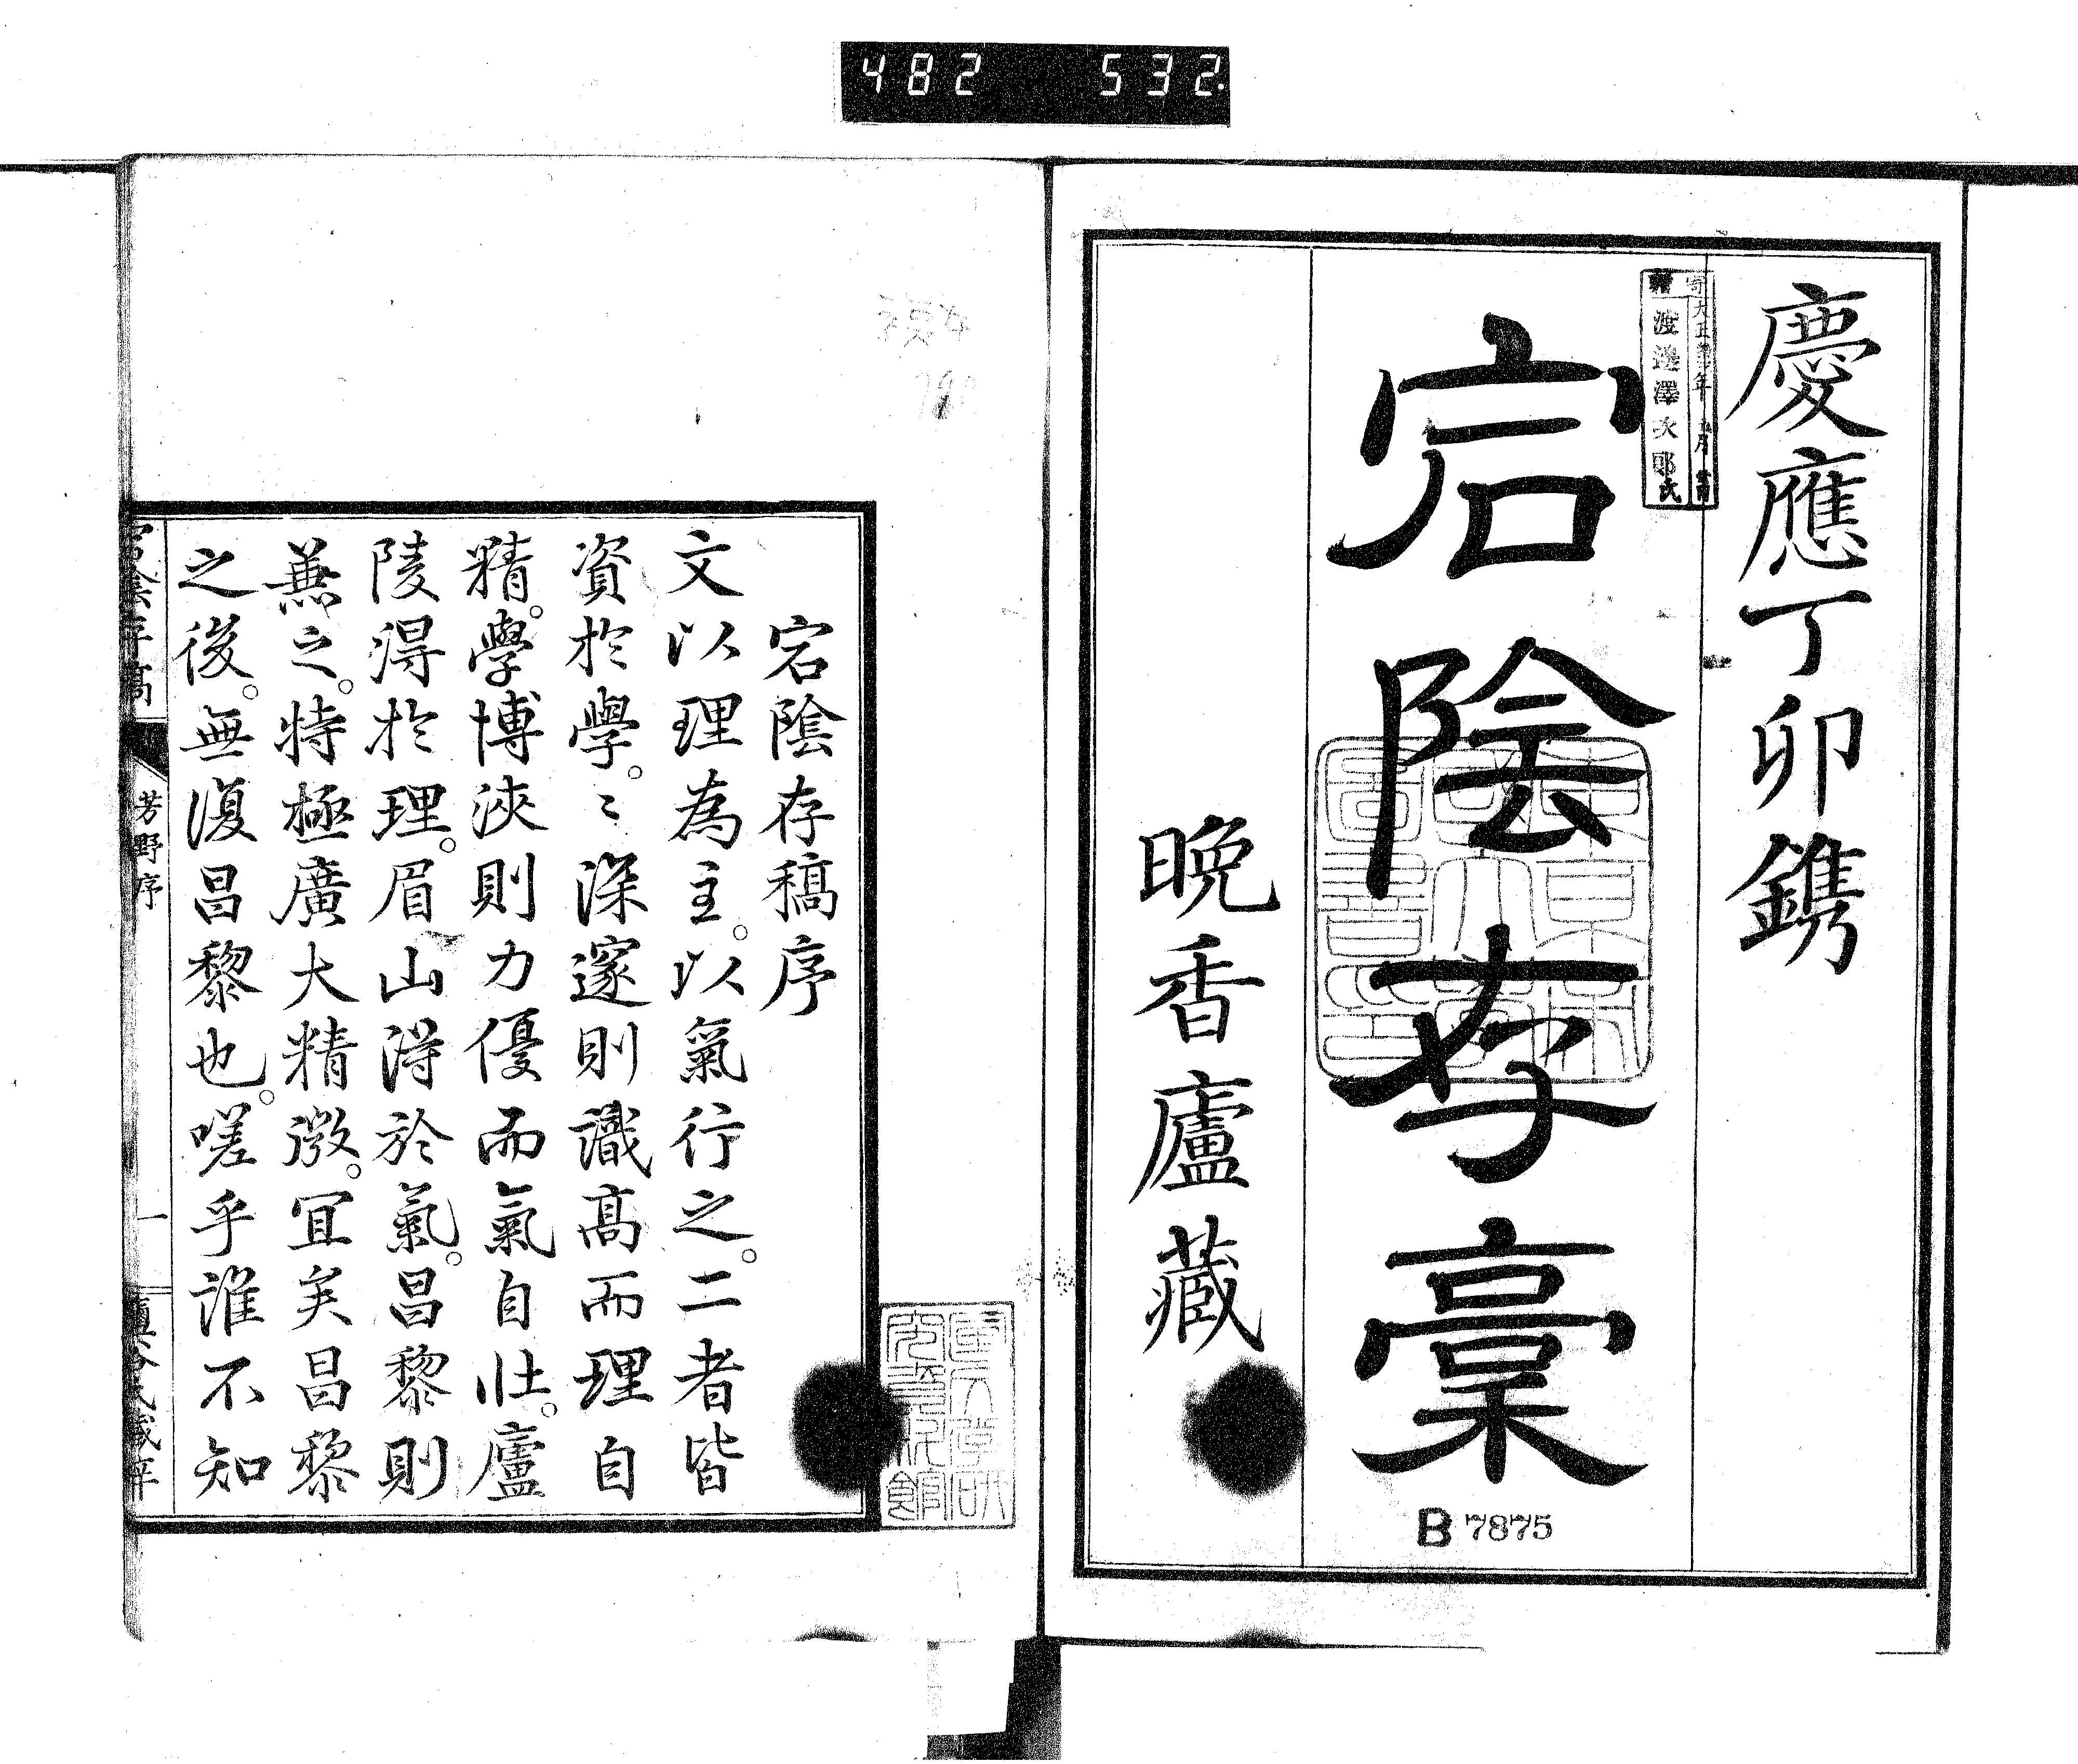 482 532
慶應丁卯鐫
宕陰存稾
晩香廬藏
渡邊澤次郎氏
B 7875
宕陰存稿序
文以理為主。以氣行之。二者皆
資於學。〻深邃則識高而理自
精。學博浹則力優而氣自壯。廬
陵淂於理。眉山淂於氣。昌黎則
兼之。特極廣大精微。宜矣昌黎
之後。無復昌黎也。嗟乎誰不知
宕陰存稿
芳野序
一